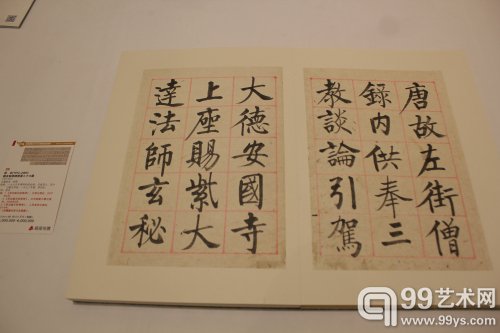 唐故左街僧
録内供奉三
教談論引駕
大德安國寺
上座賜紫大
達法師玄秘
99艺术网
www.99ys.com